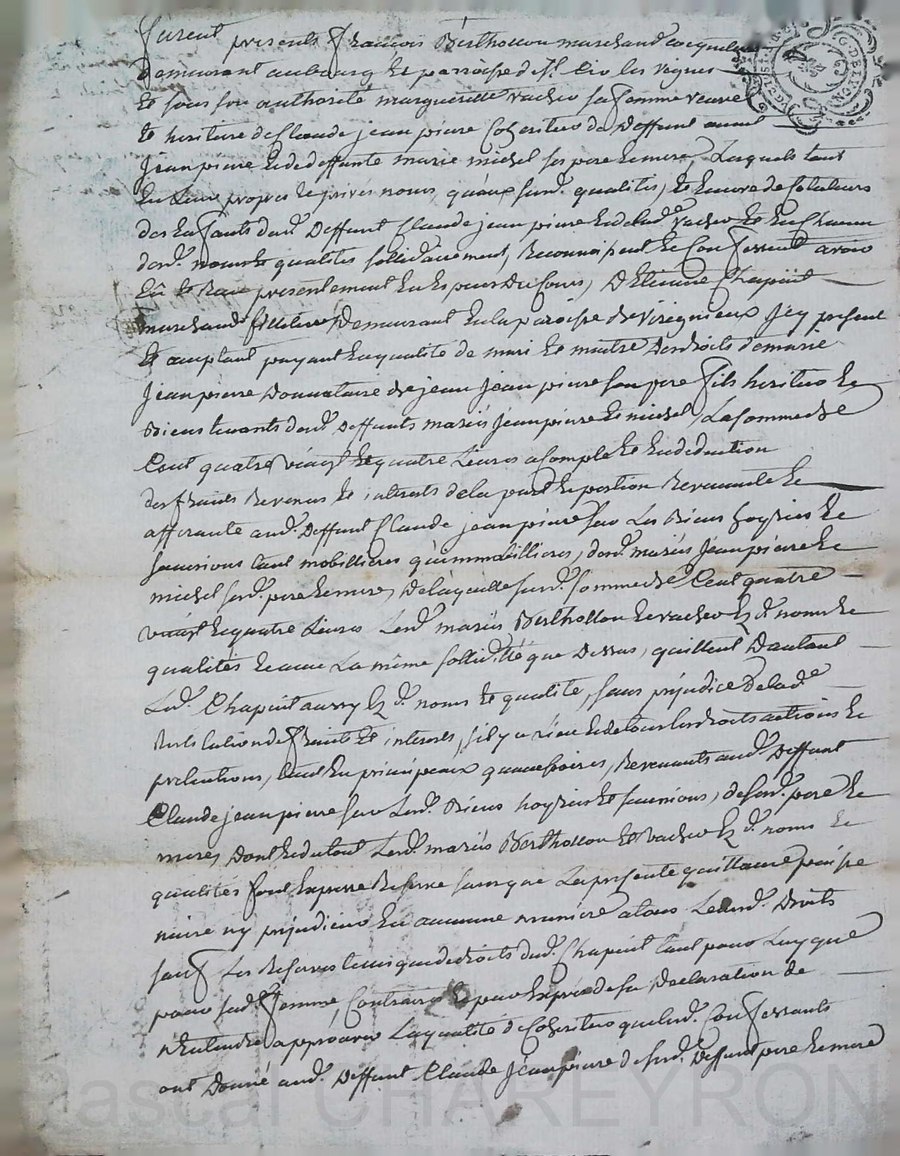 furent presents françois Berthollon marchand
demeurant au bourg et parroisse de st. Cir les vignes
et sous son authorité margueritte vacher sa femme veuve
et heritiere de Claude jean pierre Coheritier de deffunt autre
jean pierre et de deffunte marie michel ses pere et mere, Lesquels tant
en Leur propres et privés noms qu'aux susd. qualités, et encore de tuteurs
des enfants dud. deffunt Claude jean pierre et de lad. vacher et en chacun
desd. noms et qualités sollidairement, Reconnoissent et Confessent avoir
Eû et Reçu presentement en Especes du Cours, D'Etienne Chapuit
marchand demeurant en la paroisse de virignieux jcy present
et acceptant payant en qualité de mari et maitre des droits de marie
jean pierre Donnataire de jean jean pierre son pere fils heritier et
Biens tenants desd. deffunts mariés jean pierre et michel, La somme de
Cent quatre vingt et quatre Livres a compte et en deduction
des fruits Revenus et interets de la part et portion Revenante et
afferante aud. deffunt Claude jean pierre sur Les Biens hoyries et
successions tant mobilliere qu'immobilliere, desd. mariés jean pierre et
michel sesd. pere et mere, de laquelle susd. somme de Cent quatre
vingt et quatre Livres Lesd. mariés Berthollon et vacher Ez d. noms et
qualités et avec La même sollidité que dessus, quittent d'autant
Led. Chapuit aussy Ez d. noms et qualité, sans préjudice de lad.
Restitution de fruits et interets, s'il y a Lieu et de tous les droits actions et
pretentions, tant en principeaux qu'accessoires, Revenants aud. deffunt
Claude jean pierre sur Lesd. Biens hoyries et successions, de sesd. pere et
mere, dont et du tout Lesd. mariés Berthollon et vacher Ez d. noms et
qualités font Expresse Reserve sans que La presente quittance puisse
nuire ny prejudicier en aucunne maniere a tous Leursd. droits
sauf Les Reserves telles que de droits dud. Chapuit tant pour Luy que
pour sad. femme, Contraires et pour Expresse sa declaration de
n'Entendre approuver La qualité de Coheritier que Lesd. Confessants
ont donné aud. deffunt Claude jean pierre de sesd. deffunt pere et mere
Pascal CHAREYRON